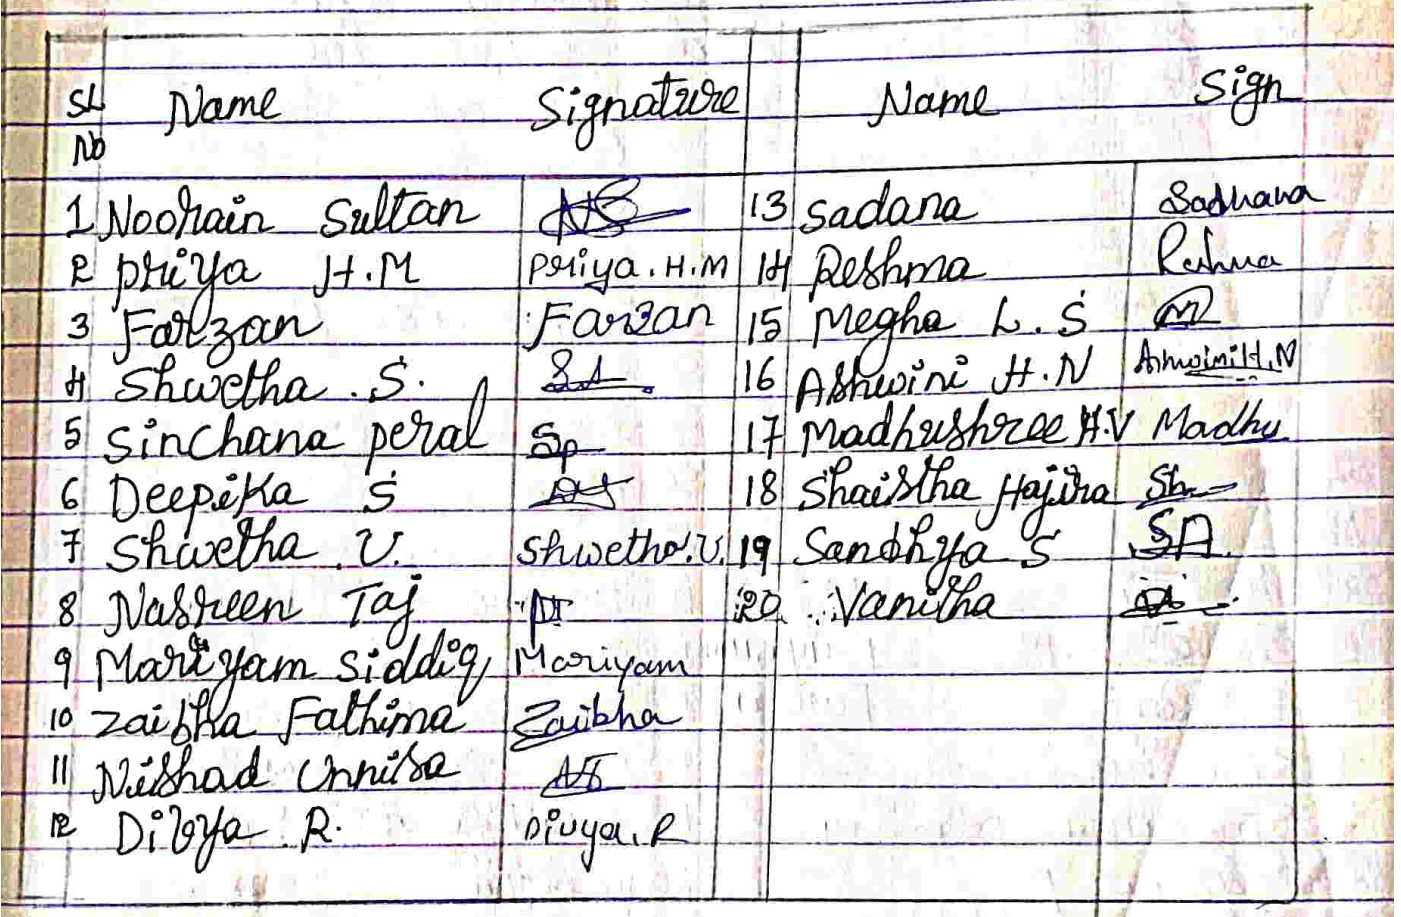 Sl No Name Signature Name Sign
1 Noorain Sultan NS 13 Sadana Sadhana
2 Priya H.M Priya.H.M 14 Reshma Reshma
3 Farzan Farzan 15 Megha L.S
4 Shwetha .S. 16 Ashwini H.N Ashwini H.N
5 Sinchana peral Sp 17 Madhushree H.V Madhu
6 Deepika S 18 Shaistha Hajira Sh
7 Shwetha .V. Shwetha.V. 19 Sandhya S SA
8 Nasreen Taj 20 Vanitha
9 Mariyam Siddiq Mariyam
10 Zaibha Fathima Zaibha
11 Nishad Unnisa
12 Divya R. Divya.R